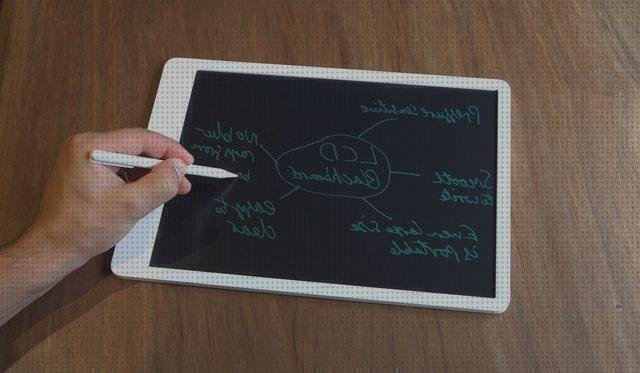 Pressure Sensitive
No blur
LCD
Blackboard
Smooth
to write
easy to
clean
Even large size
is portable